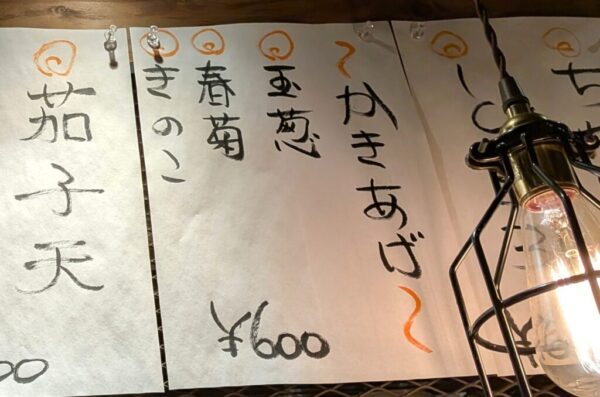 〜かきあげ〜
玉葱
春菊
きのこ
¥600
茄子天
00